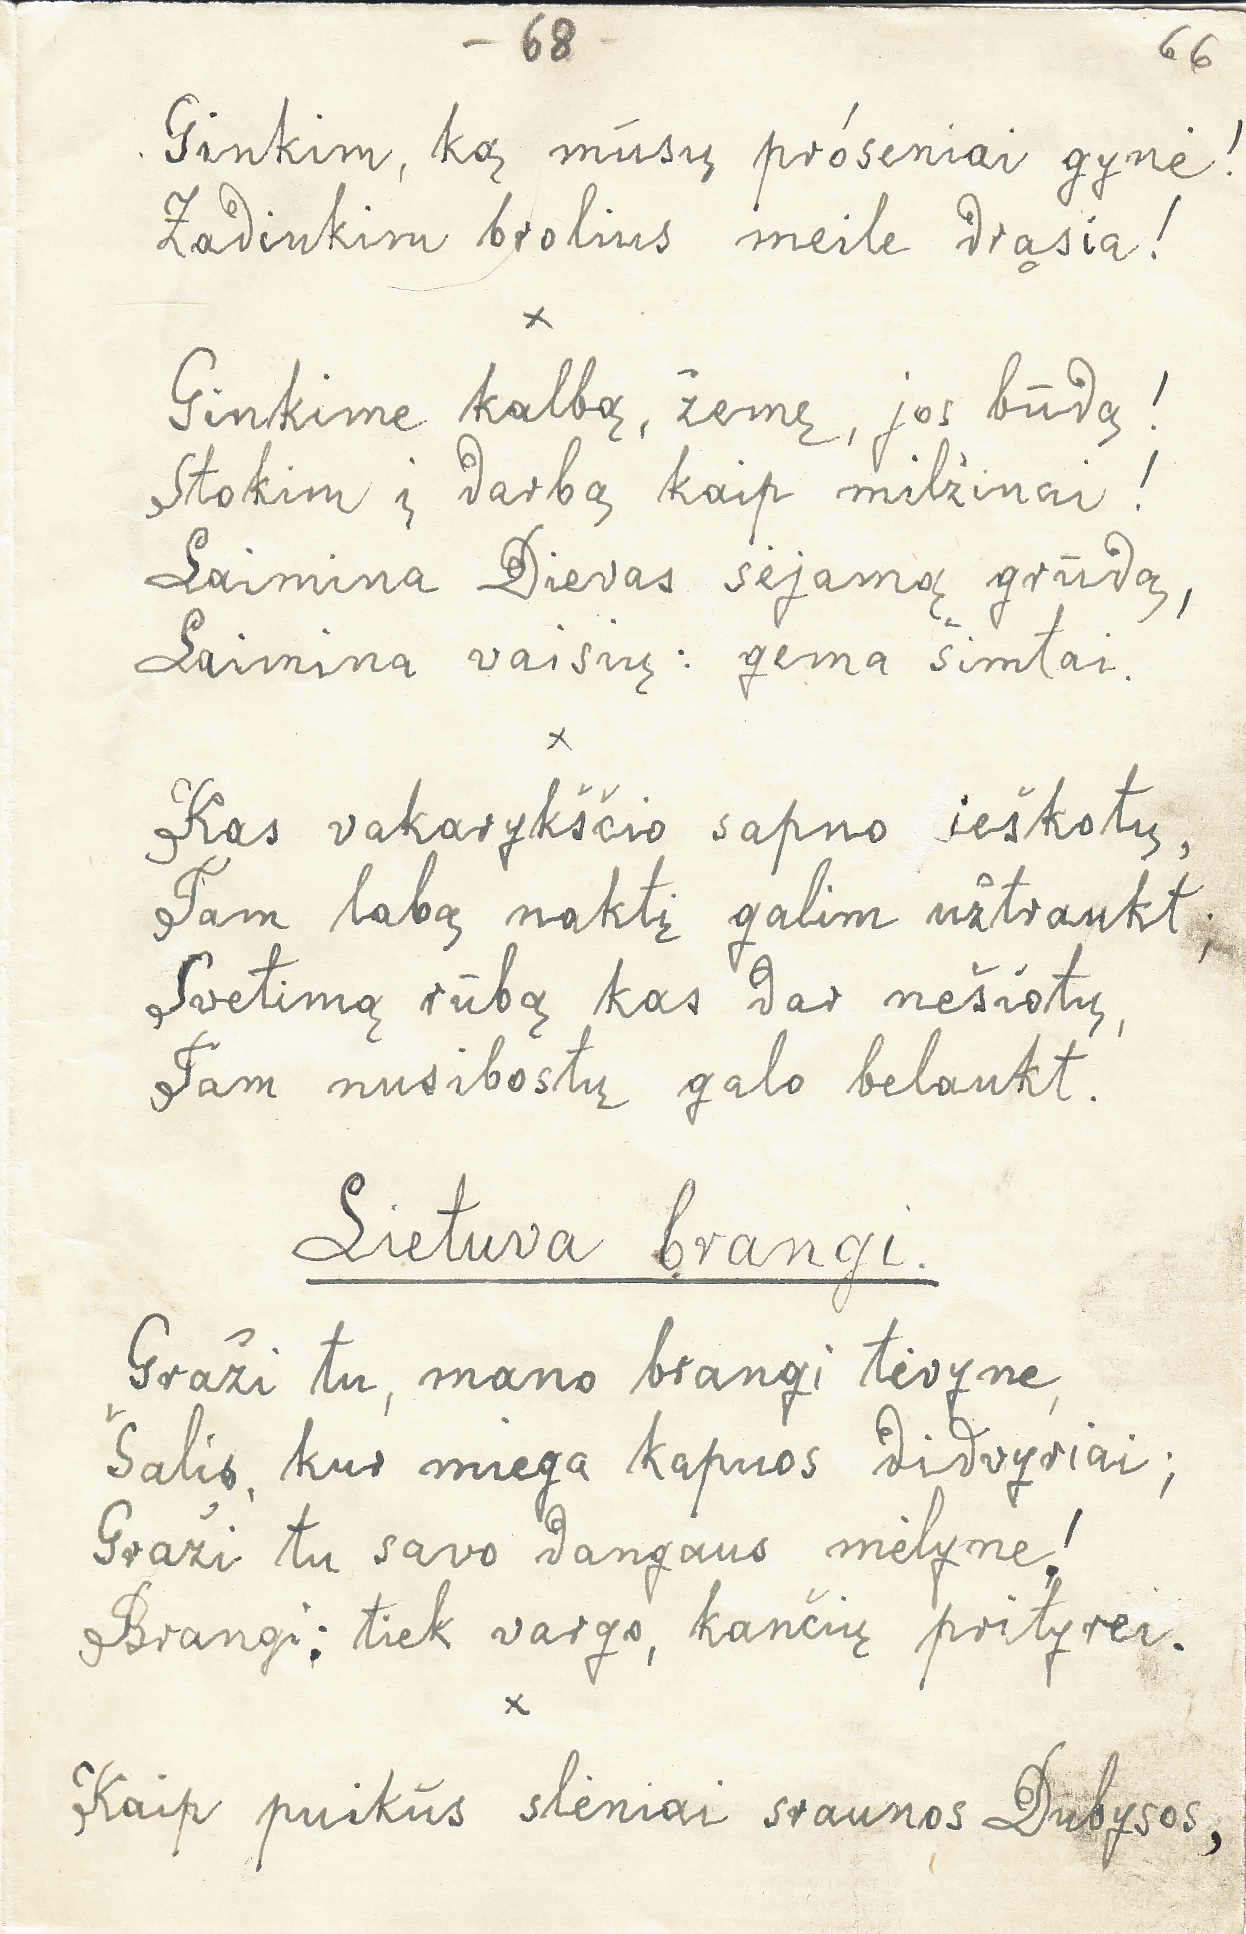 - 68 -
66
Ginkim, ką mūsų próseniai gynė!
Žadinkim brolius meile drąsia!
x
Ginkime kalbą, žemę, jos būdą!
Stokim į darbą kaip milžinai!
Laimina Dievas sėjamą grūdą,
Laimina vaisių: gema šimtai.
x
Kas vakarykščio sapno ieškotų,
Tam labą naktį galim užtraukt;
Svetimą rūbą kas dar nešiotų,
Tam nusibostų galo belaukt.
Lietuva brangi.
Graži tu, mano brangi tėvyne,
Šalis, kur miega kapuos didvyriai;
Graži tu savo dangaus mėlyne!
Brangi: tiek vargo, kančių prityrei.
x
Kaip puikūs slėniai sraunos Dubysos,